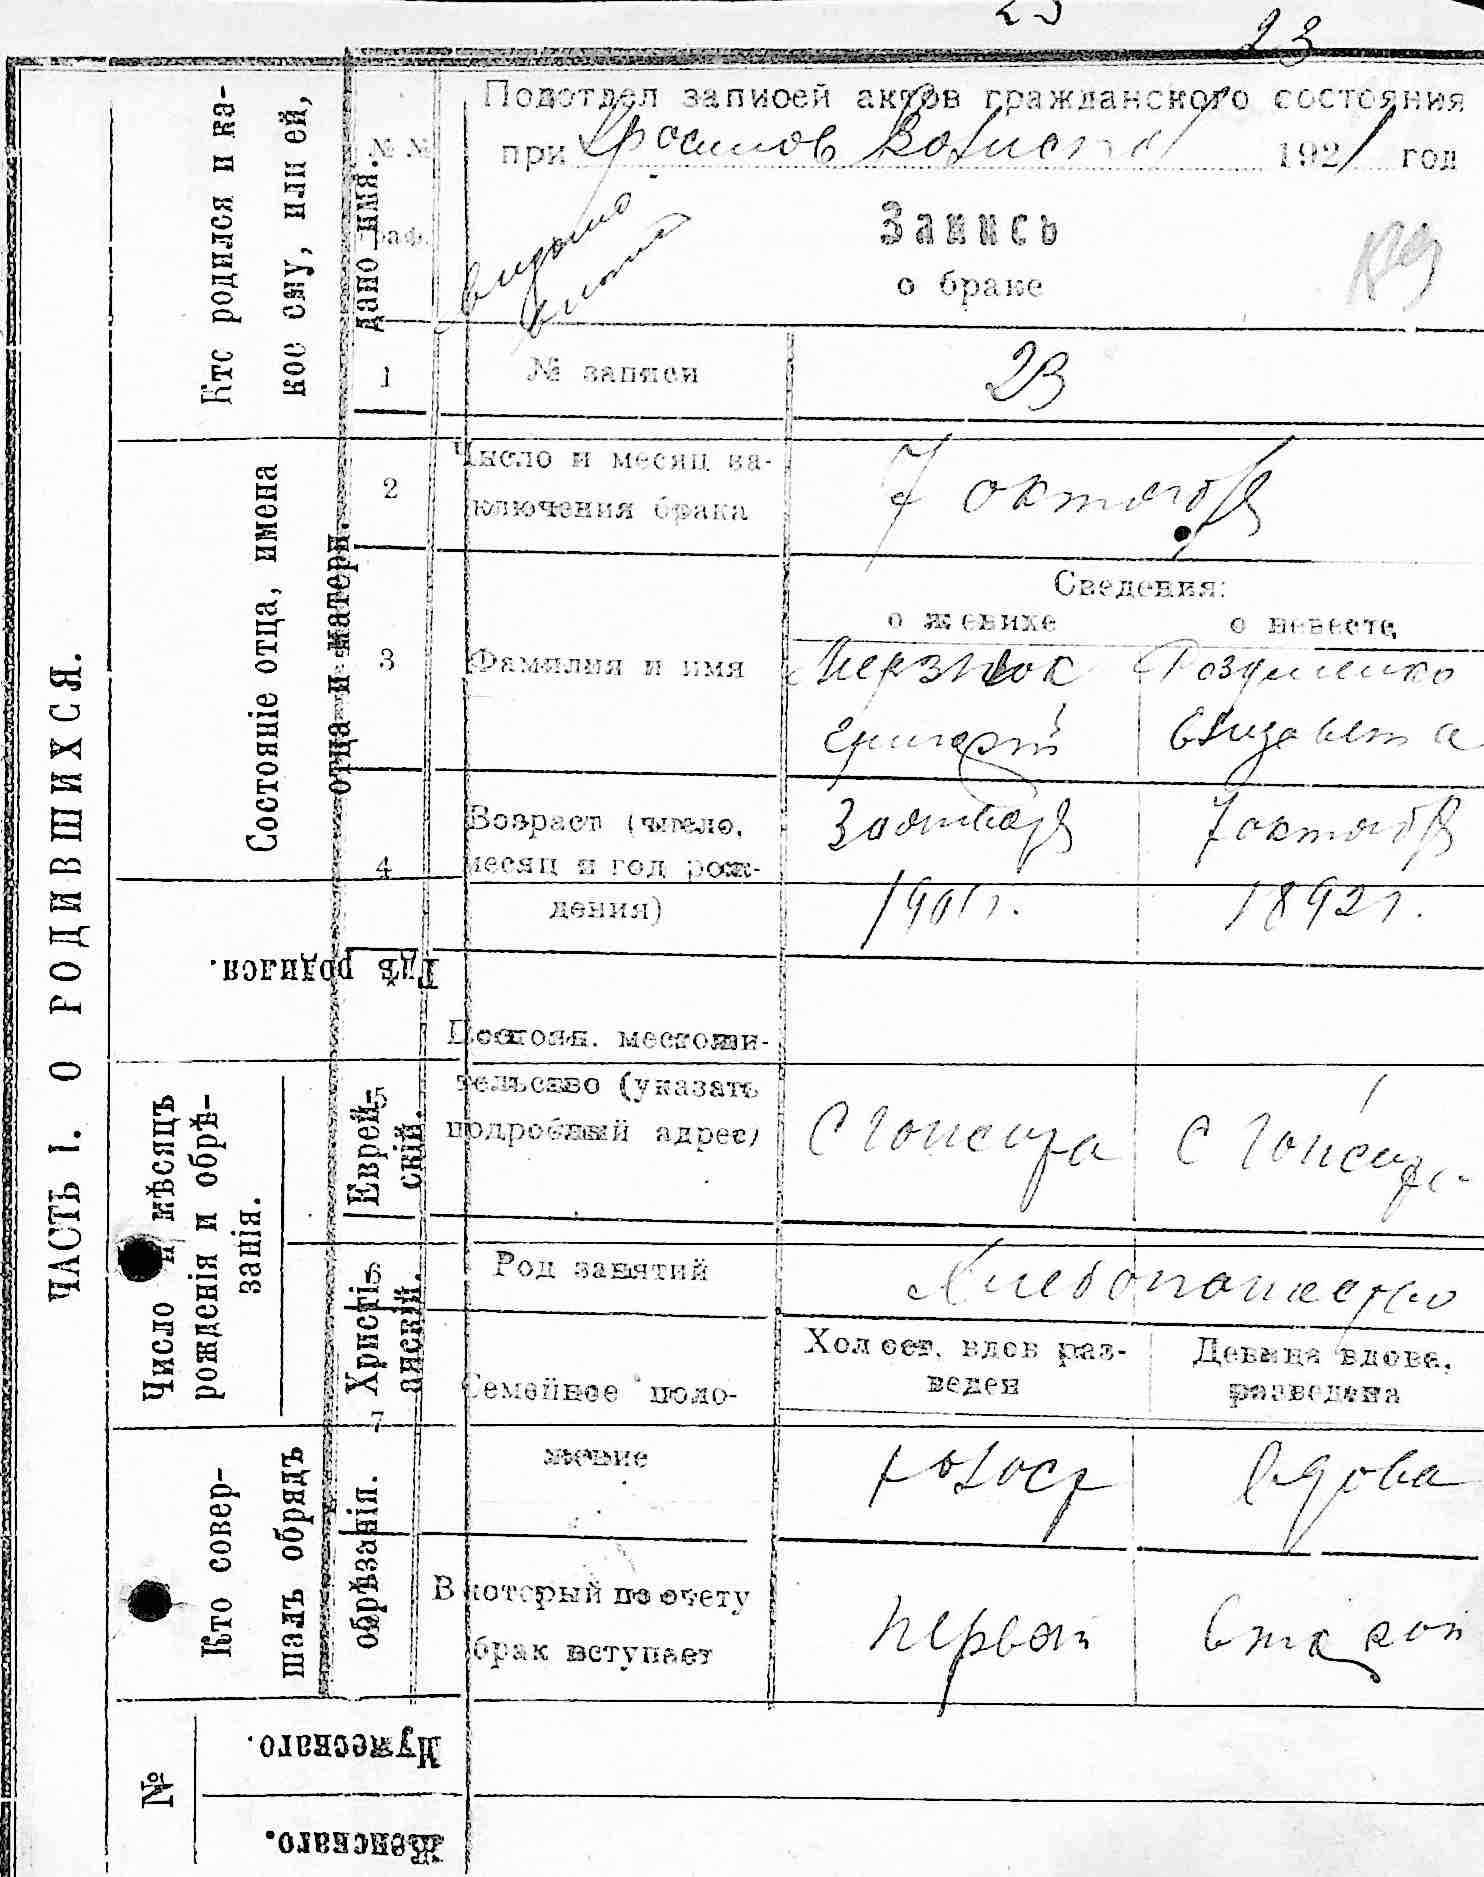 23
23
Подотдел записей актов гражданского состояния
при 1921 год
Запись
о браке
№ №
граф.
1 № записи 23
2 Число и месяц за-
ключения брака 7 октября
Сведения:
о женихе о невесте
3 Фамилия и имя
Григорий Елизавета
4 Возраст (число, 7 октября
месяц и год рож-
дения) 1901 г. 1892 г.
5 Постоян. местожи-
тельство (указать
подробный адрес)
6 Род занятий Хлебопашество
7 Семейное поло-
жение
Холост, вдов раз-
веден
Девица вдова,
разведена
холост вдова
В который по счету
брак вступает первый второй
ЧАСТЬ I. О РОДИВШИХСЯ.
Кто родился и ка-
кое ему, или ей,
дано имя.
Состояніе отца, имена
отца и матери.
Гдѣ родился.
Число и мѣсяцъ
рожденія и обрѣ-
занія.
Еврей-
скій.
Христі-
анскій.
Кто совер-
шалъ обрядъ
обрѣзанія.
№
Мужескаго.
Женскаго.